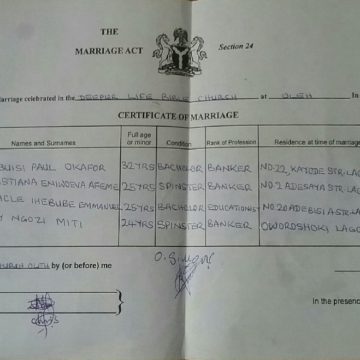 THE
MARRIAGE ACT
Section 24
arriage celebrated in the DEEPER LIFE BIBLE CHURCH at OLEH
CERTIFICATE OF MARRIAGE
Names and Surnames Full age or minor Condition Rank of Profession Residence at time of marriage
BUISI PAUL OKAFOR 32YRS BACHELOR BANKER NO.22, KAYODE STR. LAG
STIANA AFEME 25YRS SPINSTER BANKER NO 2 ADESAYA STR. LAG
ACLE IHEBUBE EMMANUEL 25YRS BACHELOR EDUCATIONIST NO.20 ADEBISI A STR. LA
Y NGOZI MITI 24YRS SPINSTER BANKER OWORDSHOKI LAGO
by (or before) me
In the presence